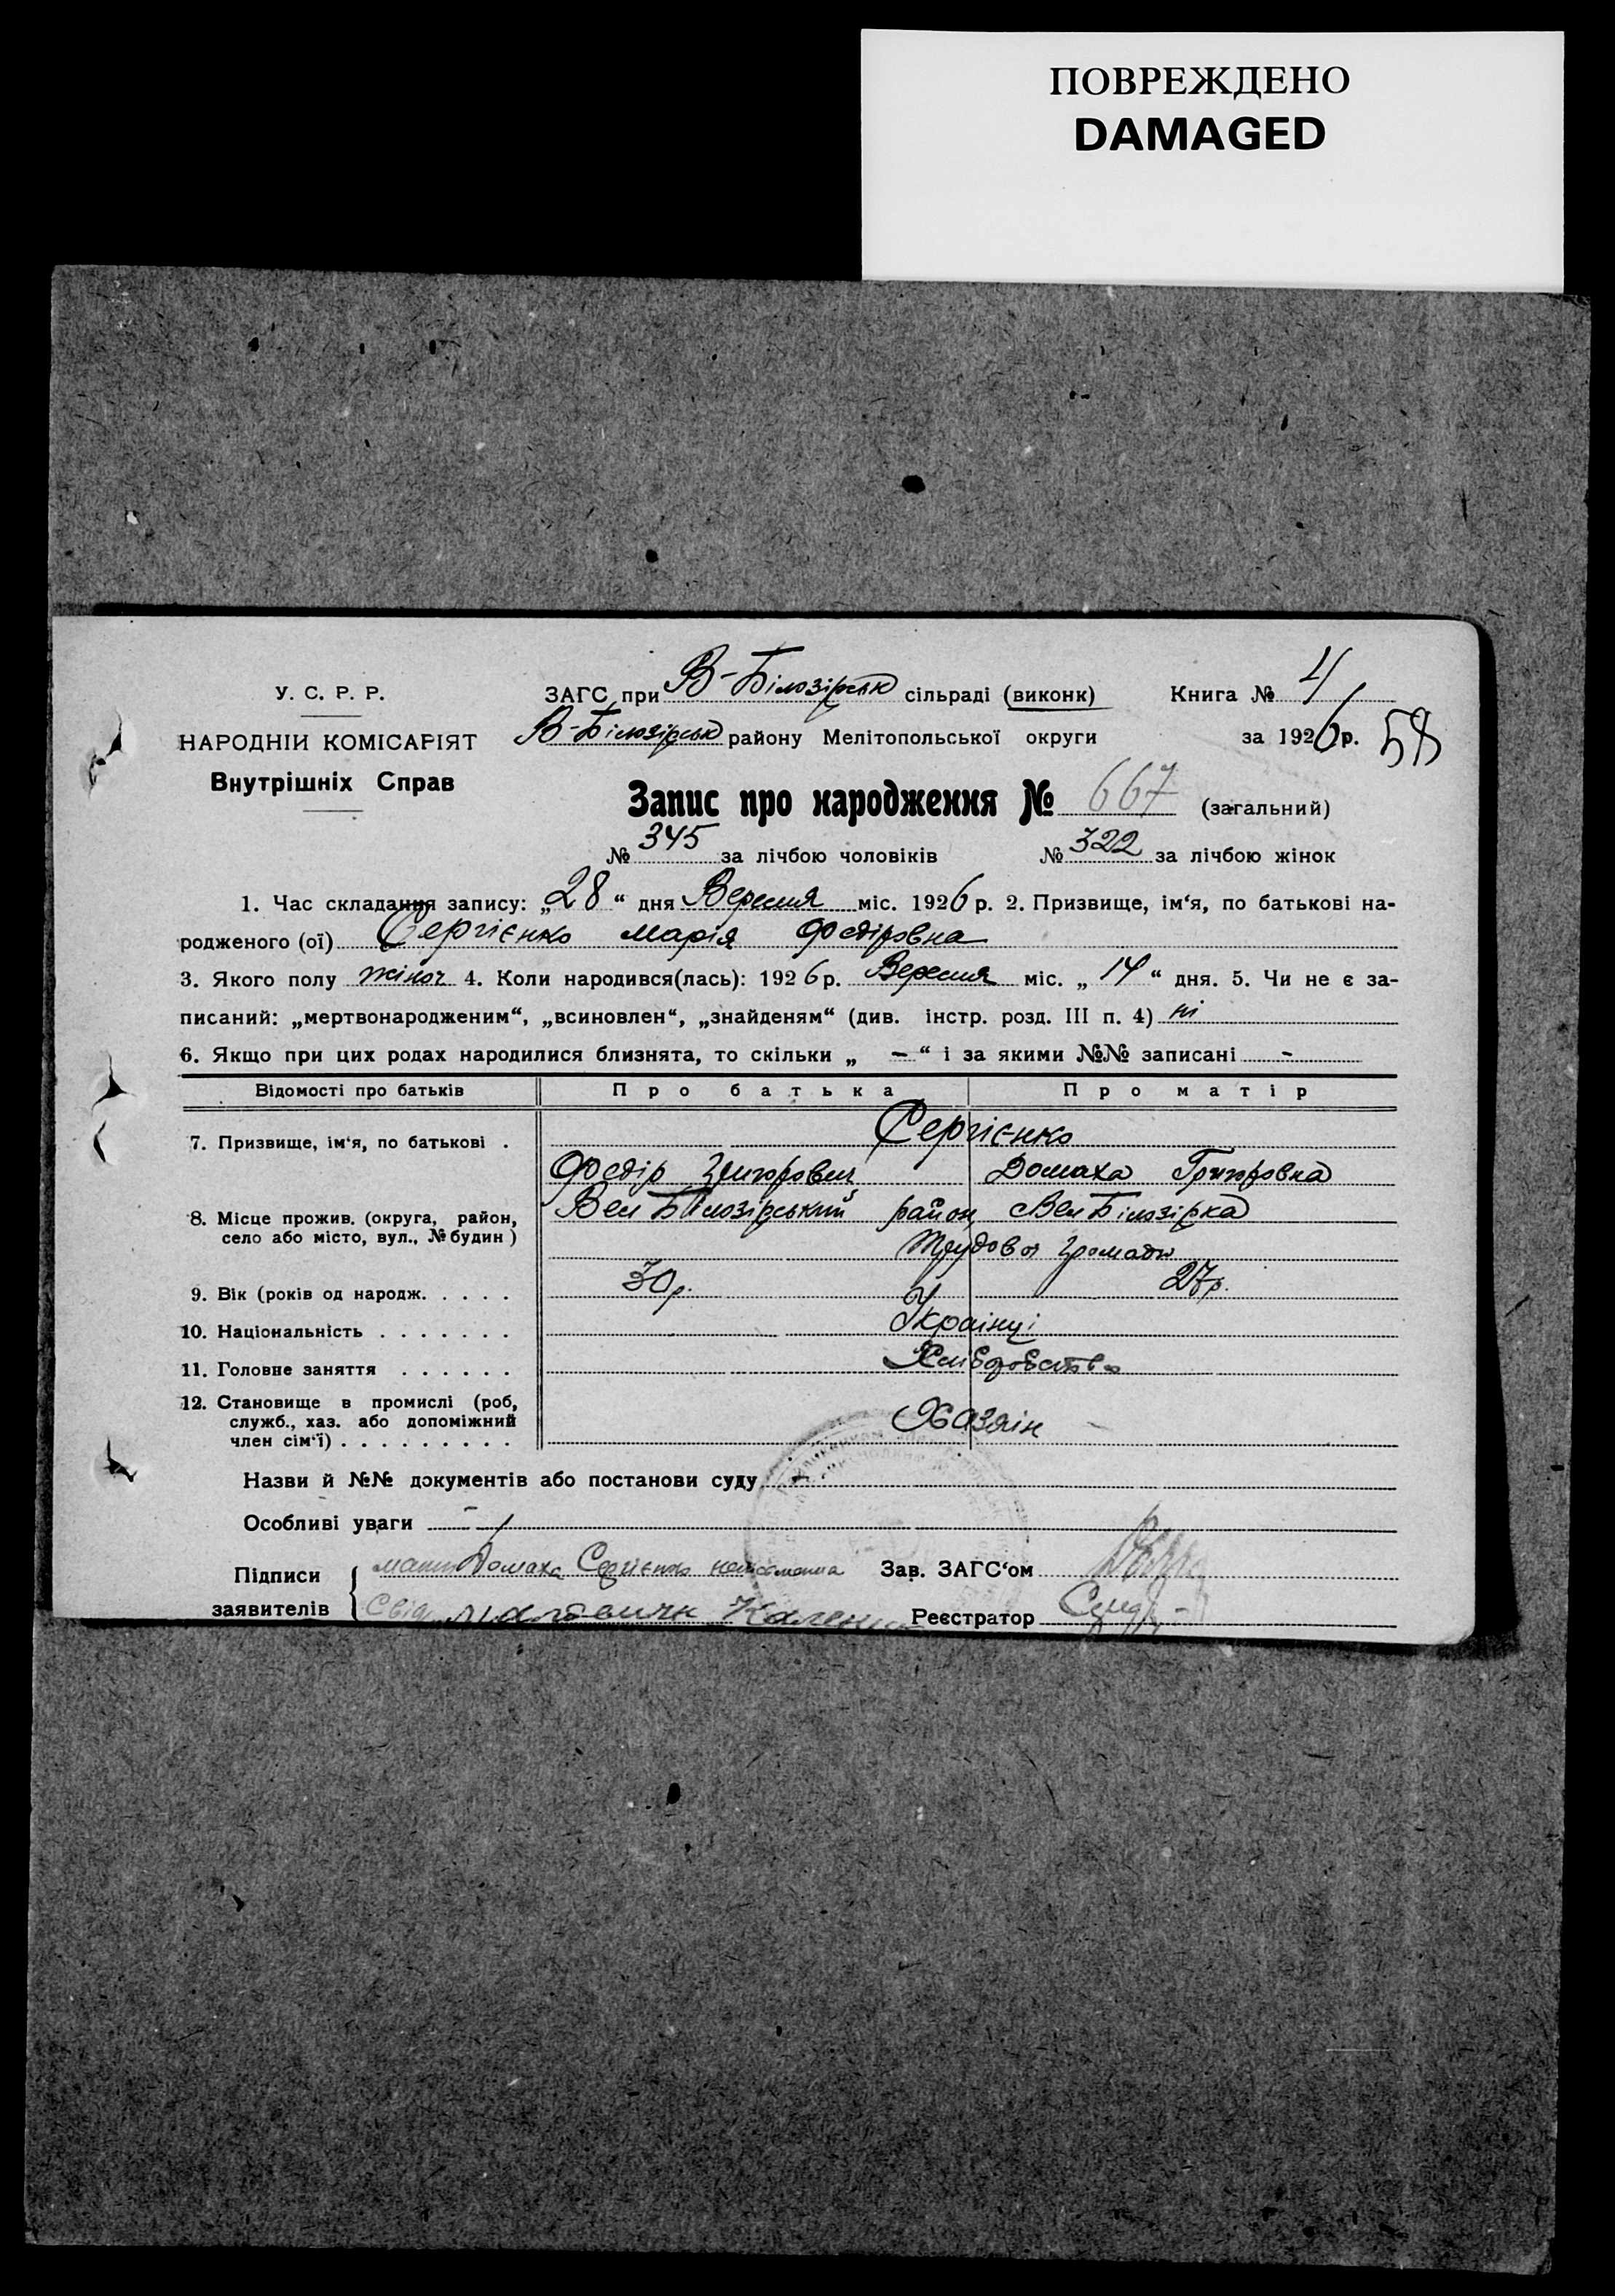 ПОВРЕЖДЕНО
DAMAGED
У. С. Р. Р.
НАРОДНІЙ КОМІСАРІЯТ
Внутрішніх Справ
ЗАГС при В-Білозірськ сільраді (виконк)
В-Білозірськ району Мелітопольської округи
Книга № 4
за 1926 р. 58
Запис про народження № 667 (загальний)
№ 345 за лічбою чоловіків № 322 за лічбою жінок
1. Час складання запису: „28“ дня Вересня міс. 1926 р. 2. Призвище, ім‘я, по батькові на-
родженого (ої) Сергієнко Марія Федіровна
3. Якого полу жіноч 4. Коли народився(лась): 1926 р. Вересня міс. „14“ дня. 5. Чи не є за-
писаний: „мертвонародженим“, „всиновлен“, „знайденям“ (див. інстр. розд. III п. 4) ні
6. Якщо при цих родах народилися близнята, то скільки „ – “ і за якими №№ записані -
Відомості про батьків Про батька Про матір
7. Призвище, ім‘я, по батькові . Сергієнко
Федір Григорович Домаха Григоровна
8. Місце прожив. (округа, район, село або місто, вул., № будин) Вел Білозірський район Вел Білозірка
Трудова громада
9. Вік (років од народж. . . . . 30 р. 27 р.
10. Національність . . . . . . . Українці
11. Головне заняття . . . . . . Хліборобство
12. Становище в промислі (роб, служб., хаз. або допоміжний член сім‘ї) . . . . . . . . . Хазяїн
Назви й №№ документів або постанови суду -
Особливі уваги -
Підписи заявителів
мати Домаха Сергієнко неписьменна
Зав. ЗАГС‘ом
Реєстратор